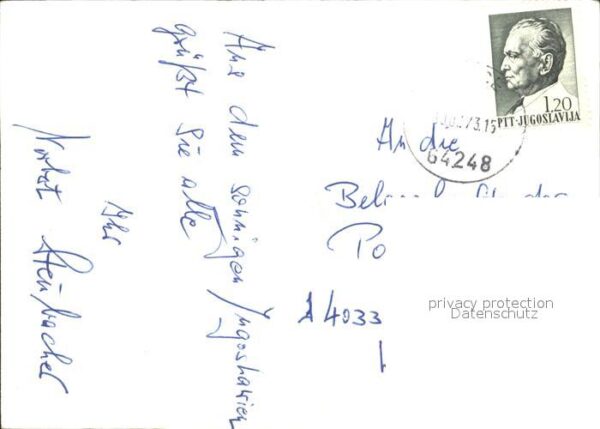 Aus dem sonnigen Jugoslawien
grüßt Sie alle
Ihr
Norbert Steinbacher
1.20
PTT-JUGOSLAVIJA
73.15
64248
An die
Po
A 4033
privacy protection
Datenschutz